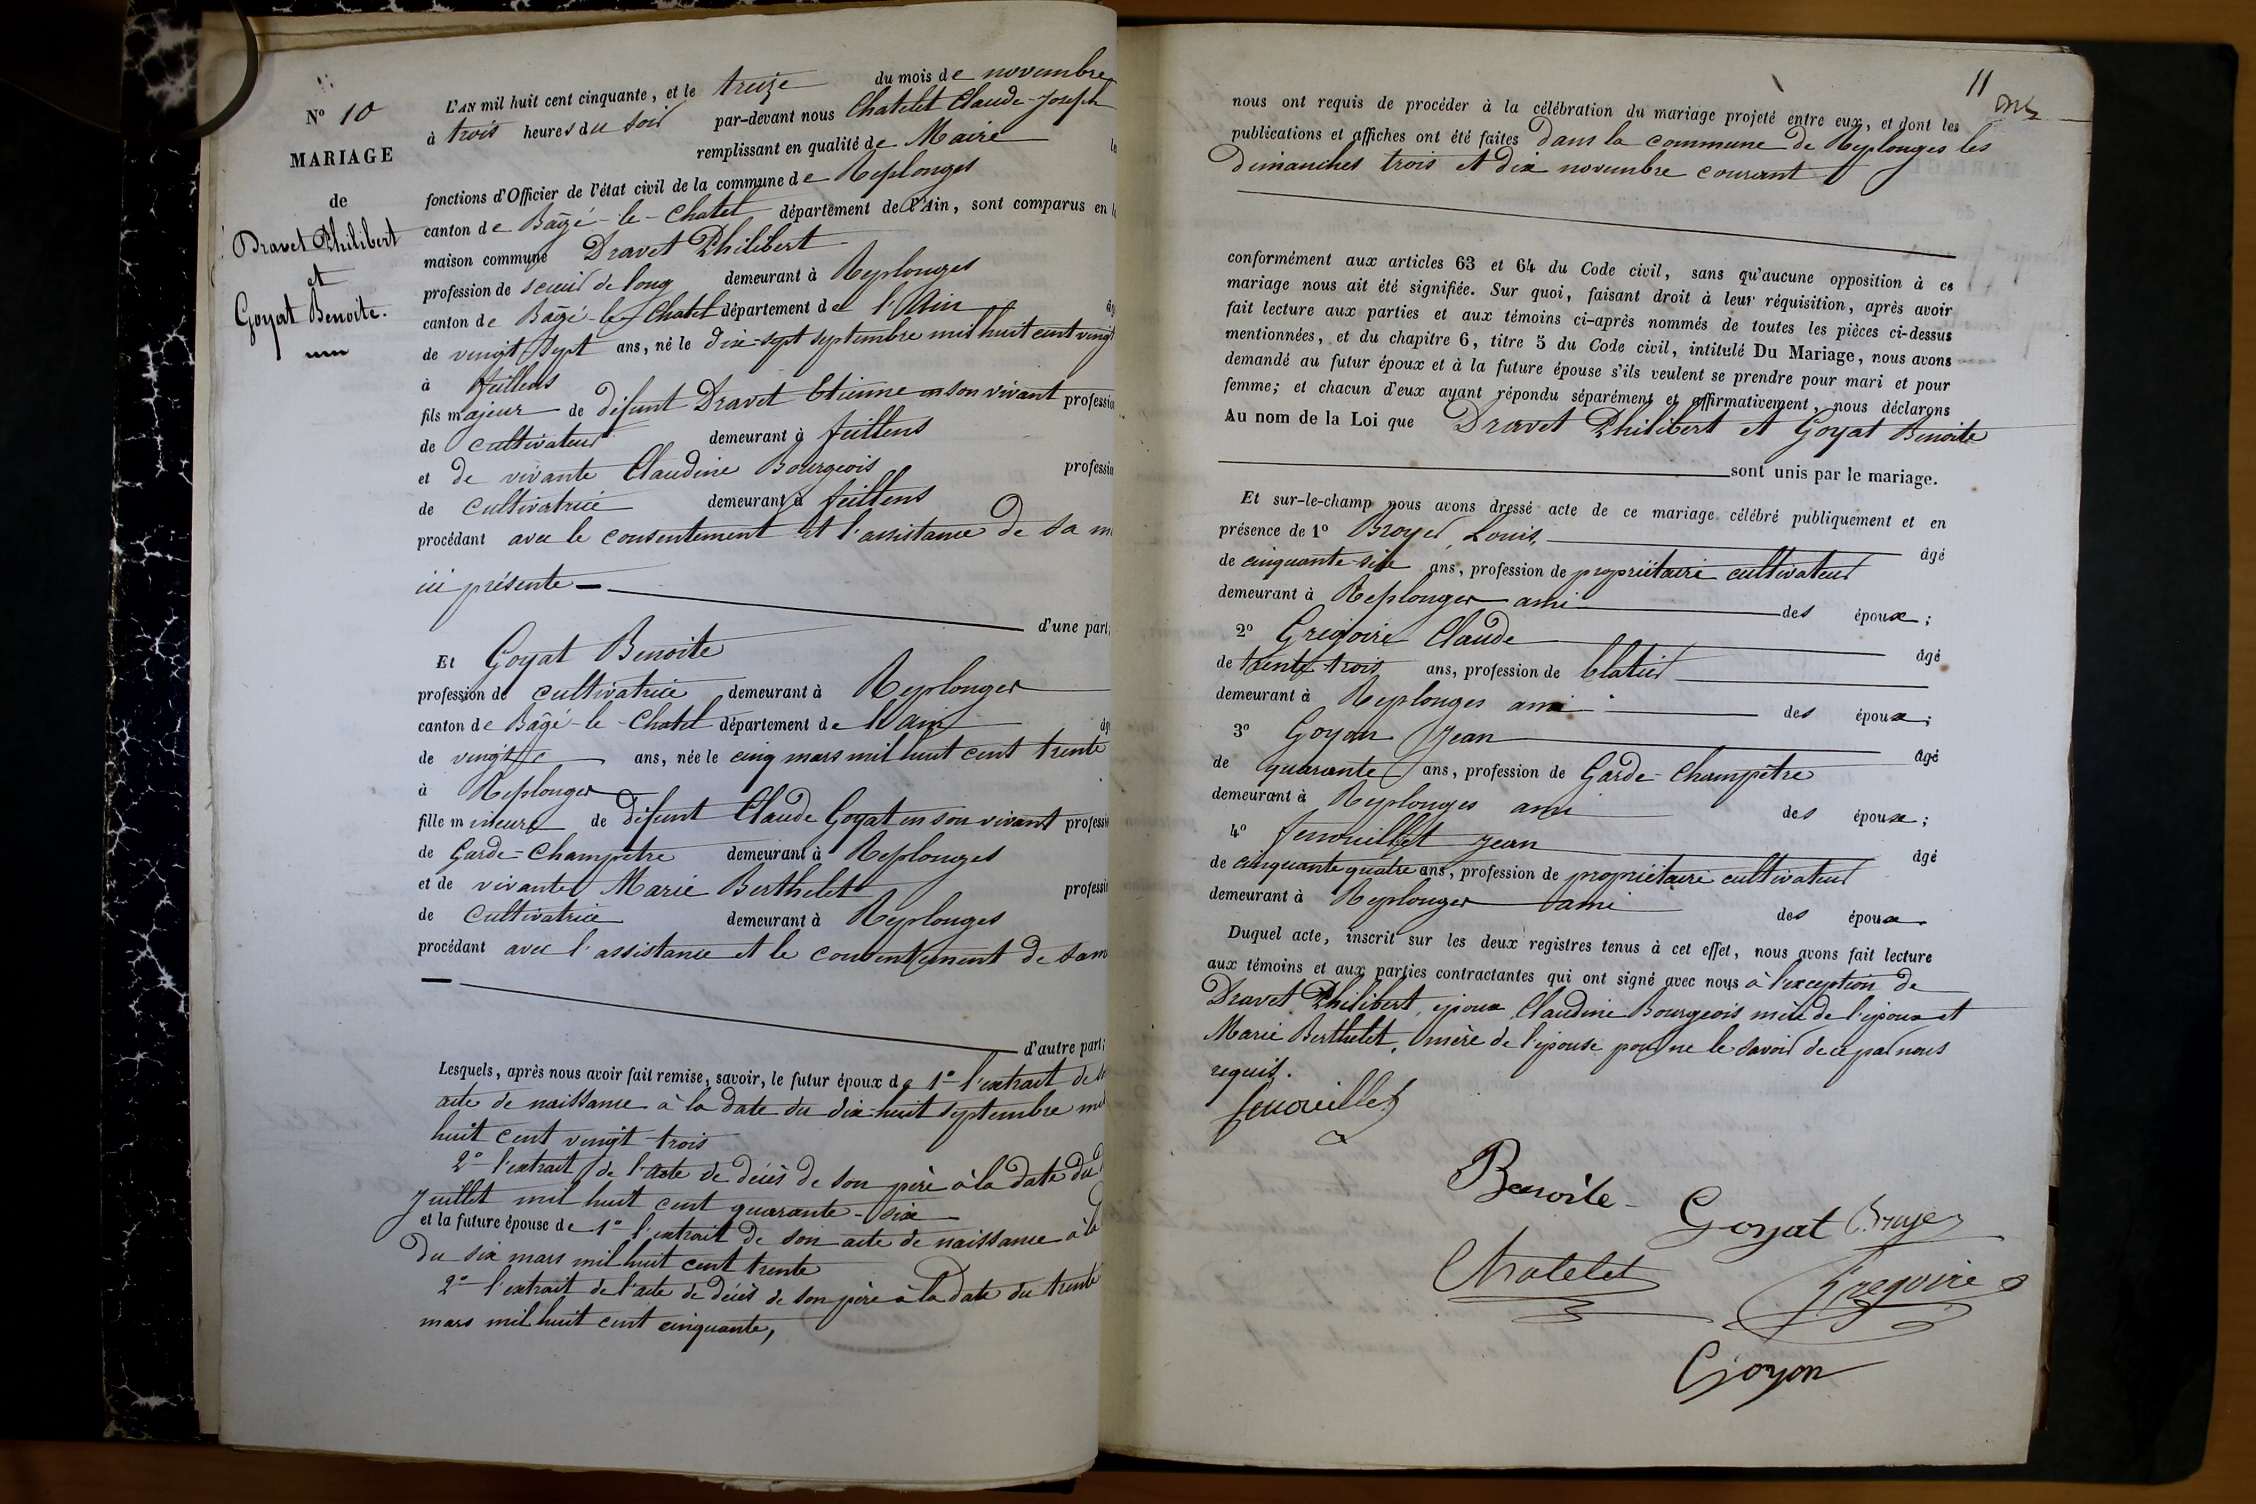 N° 10
MARIAGE
de
Dravet Philibert
et
Goyat Benoite.
L'AN mil huit cent cinquante, et le treize du mois de novembre
à trois heures du soir par-devant nous Chatelet Claude-Joseph
remplissant en qualité de Maire le
fonctions d'Officier de l'état civil de la commune de Replonges
canton de Bâgé-le-Chatel département de l'Ain, sont comparus en
maison commune Dravet Philibert
profession de scieur de long demeurant à Replonges
canton de Bâgé-le-Chatel département de l'Ain
de vingt sept ans, né le dix-sept septembre mil huit cent vingt
à feillens
fils majeur de défunt Dravet Etienne en son vivant professio
de cultivateur demeurant à feillens
et de vivante Claudine Bourgeois professio
de cultivatrice demeurant à feillens
procédant avec le consentement et l'assistance de sa m
ici présente
d'une part;
Et Goyat Benoite
profession de cultivatrice demeurant à Replonges
canton de Bâgé-le-Chatel département de l'Ain âg
de vingt ans, née le cinq mars mil huit cent trente
à Replonges
fille mineure de défunt Claude Goyat en son vivant professio
de Garde-Champêtre demeurant à Replonges
et de vivante Marie Berthelet professi
de Cultivatrice demeurant à Replonges
procédant avec l'assistance et le consentement de sa m
d'autre part;
Lesquels, après nous avoir fait remise, savoir, le futur époux de 1° l'extrait de
acte de naissance à la date du dix-huit septembre mil
huit cent vingt-trois
2° l'extrait de l'acte de décès de son père à la date du
Juillet mil huit cent quarante-six
et la future épouse de 1° l'extrait de son acte de naissance à la
du six mars mil huit cent trente
2° l'extrait de l'acte de décès de son père à la date du trente
mars mil huit cent cinquante,
11
nous ont requis de procéder à la célébration du mariage projeté entre eux, et dont les
publications et affiches ont été faites dans la commune de Replonges les
Dimanches trois et dix novembre courant
conformément aux articles 63 et 64 du Code civil, sans qu'aucune opposition à ce
mariage nous ait été signifiée. Sur quoi, faisant droit à leur réquisition, après avoir
fait lecture aux parties et aux témoins ci-après nommés de toutes les pièces ci-dessus
mentionnées, et du chapitre 6, titre 5 du Code civil, intitulé Du Mariage, nous avons
demandé au futur époux et à la future épouse s'ils veulent se prendre pour mari et pour
femme; et chacun d'eux ayant répondu séparément et affirmativement, nous déclarons
Au nom de la Loi que Dravet Philibert et Goyat Benoite
sont unis par le mariage.
Et sur-le-champ nous avons dressé acte de ce mariage célébré publiquement et en
présence de 1° Broyer Louis, âgé
de cinquante-six ans, profession de propriétaire cultivateur
demeurant à Replonges ami des époux;
2° Gregoire Claude âgé
de trente-trois ans, profession de blatier
demeurant à Replonges ami des époux;
3° Goyon Jean âgé
de quarante ans, profession de Garde-Champêtre
demeurant à Replonges ami des époux;
4° fenouillet Jean âgé
de cinquante quatre ans, profession de propriétaire cultivateur
demeurant à Replonges ami des époux
Duquel acte, inscrit sur les deux registres tenus à cet effet, nous avons fait lecture
aux témoins et aux parties contractantes qui ont signé avec nous à l'exception de
Dravet Philibert, époux, Claudine Bourgeois mère de l'époux et
Marie Berthelet, mère de l'épouse pour ne le savoir de ce par nous
requis.
fenouillet
Benoite Goyat Broyer
Chatelet Gregoire
Goyon